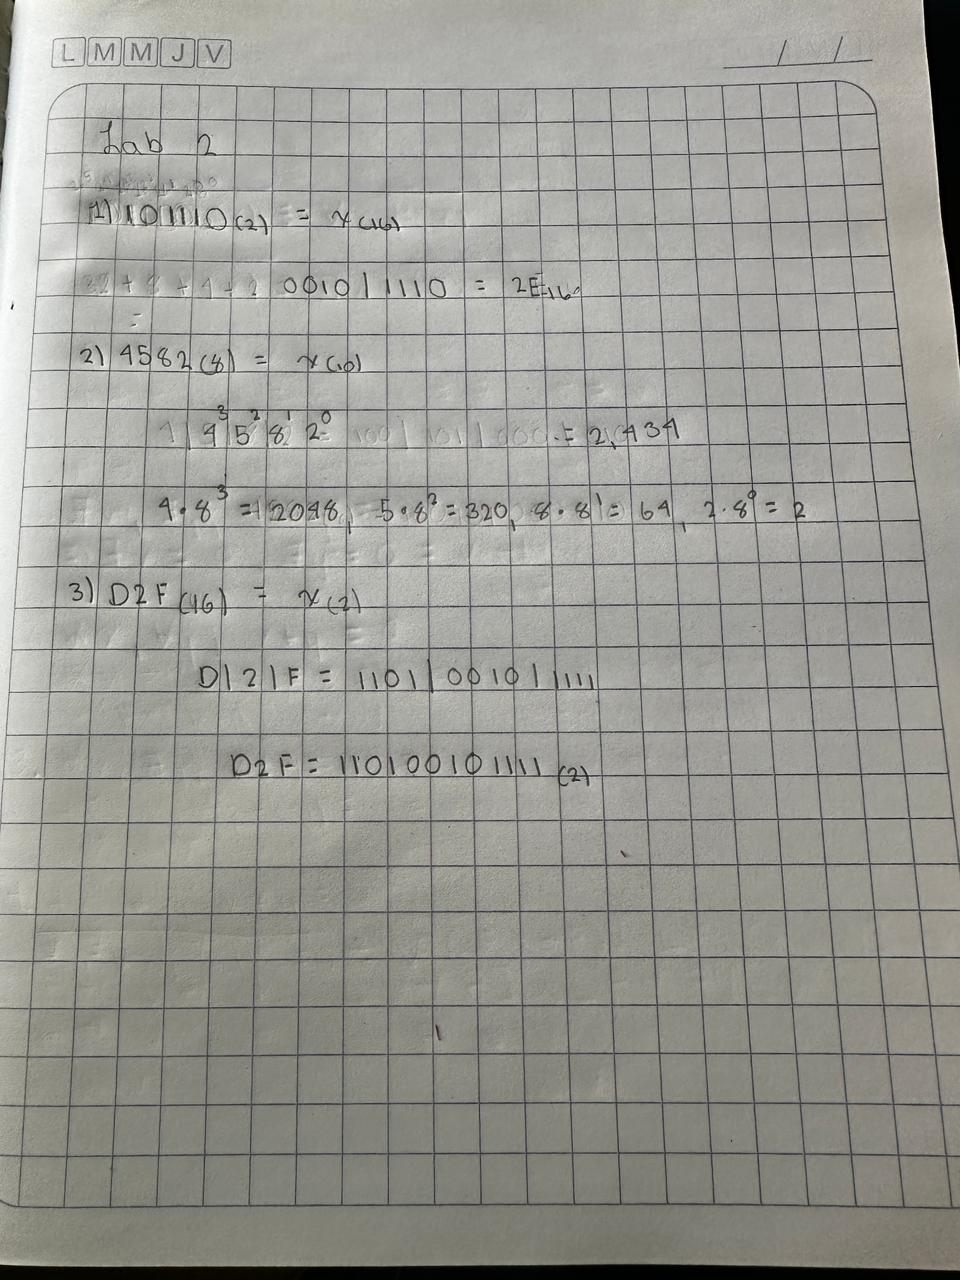 L M M J V / /
Lab 2
1) 101110(2) = x(16)
32 + 8 + 4 + 2 0010 | 1110 = 2E16
=
2) 4582(8) = x(10)
4³ 5² 8¹ 2⁰ = 2,434
4·8³ = 2048, 5·8² = 320, 8·8¹ = 64, 2·8⁰ = 2
3) D2F(16) = x(2)
D|2|F = 1101|0010|1111
D2F = 110100101111(2)